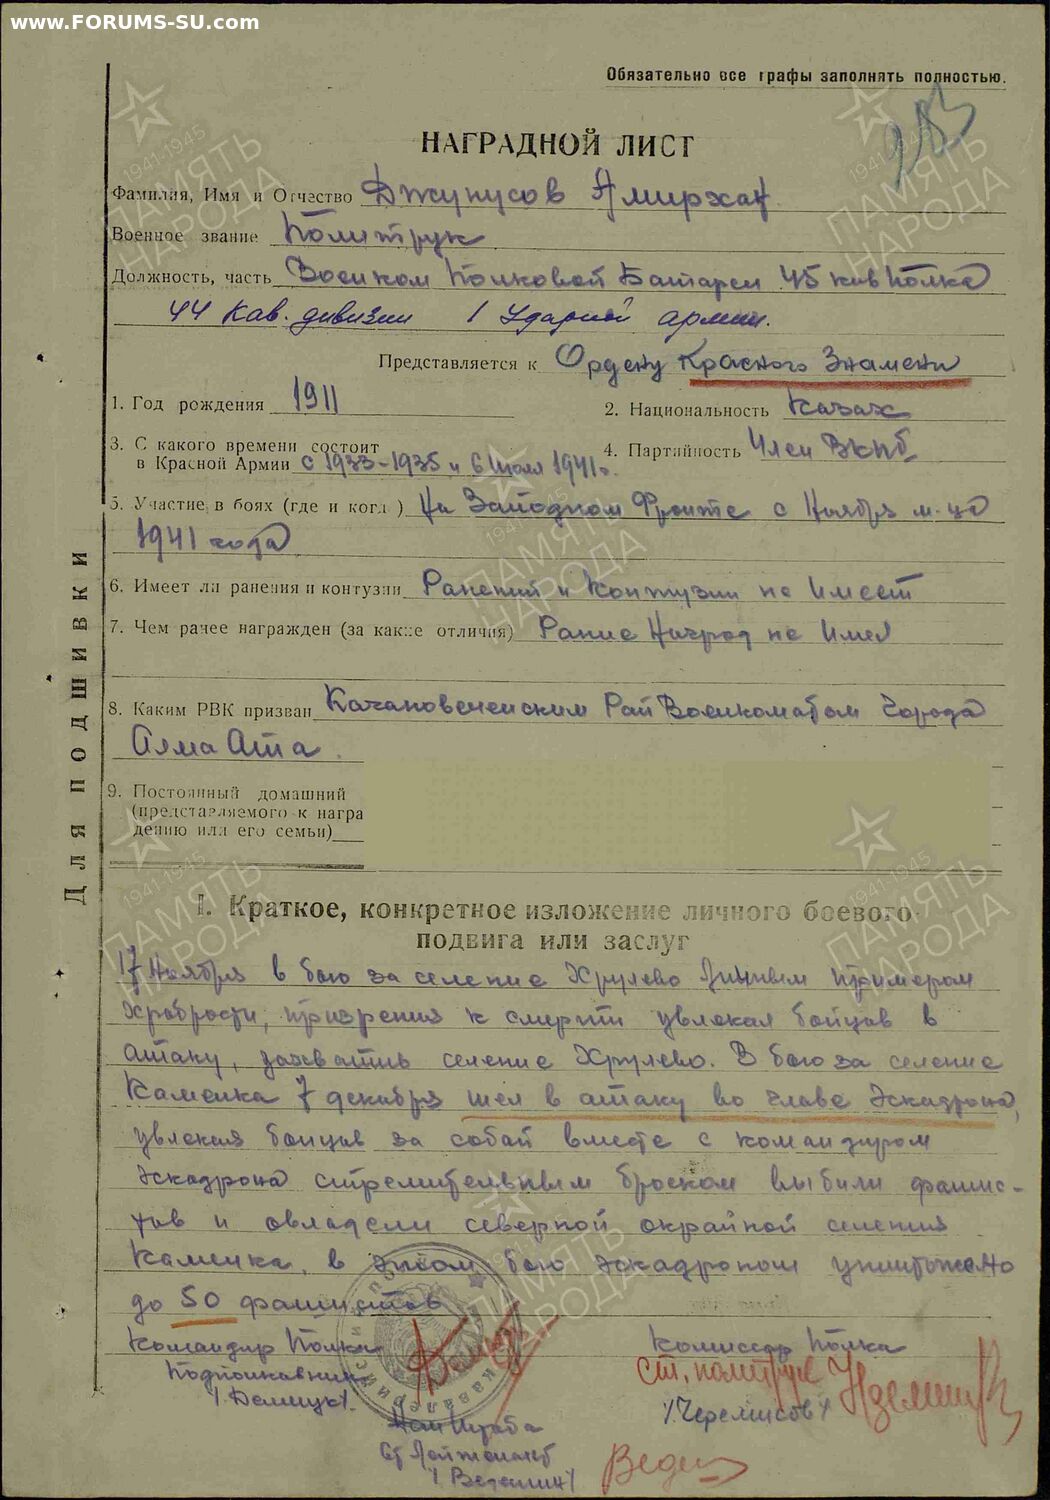 www.FORUMS-SU.com
Обязательно все графы заполнять полностью.
НАГРАДНОЙ ЛИСТ
Фамилия, Имя и Отчество Джунусов Амирхан
Военное звание Политрук
Должность, часть Военком Полковой Батареи 45 кав полка
44 Кав. дивизии 1 Ударной армии.
Представляется к Ордену Красного Знамени
1. Год рождения 1911
2. Национальность Казах
3. С какого времени состоит
в Красной Армии с 1933-1935 и 6 Июля 1941 г.
4. Партийность Член ВКПб
5. Участие в боях (где и когда) На Западном Фронте с Ноября м-ца
1941 года
6. Имеет ли ранения и контузии Ранений и Контузии не Имеет
7. Чем ранее награжден (за какие отличия) Ранее Наград не Имел
8. Каким РВК призван Райвоенкоматом города
Алма Ата.
9. Постоянный домашний
(представляемого к награ
дению или его семьи)
Для подшивки
I. Краткое, конкретное изложение личного боевого
подвига или заслуг
17 Ноября в бою за селение Хрулево Личным примером
храбрости, призрения к смерти увлекал бойцов в
атаку, захватить селение Хрулево. В бою за селение
Каменка 7 декабря шел в атаку во главе Эскадрона,
увлекая бойцов за собой вместе с командиром
эскадрона стремительным броском выбили фашис-
тов и овладели северной окрайной селения
Каменка, в этом бою эскадроном уничтожено
до 50 фашистов
Командир Полка
Подполковник
Комиссар Полка
Ст. политрук
/Черемисов/
Нач Штаба
Ст Лейтенант
ПАМЯТЬ
НАРОДА
1941-1945